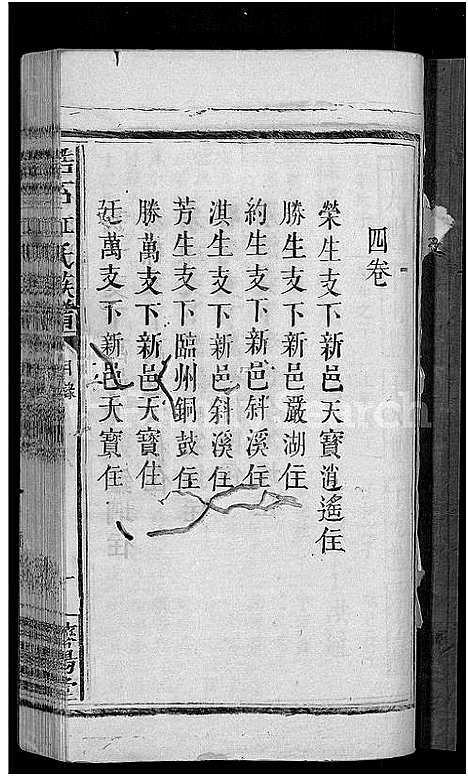 四卷
榮生支下新邑天寶逍遙住
勝生支下新邑嚴湖住
約生支下新邑斜溪住
淇生支下新邑斜溪住
芳生支下臨州銅鼓住
勝萬支下新邑天寶住
廷萬支下新邑天寶住
氏族譜
目錄